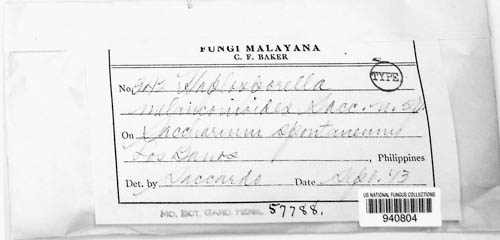 FUNGI MALAYANA
C. F. BAKER
TYPE
No. 3143
Sacc. n. sp.
On Saccharum spontaneum
Los Banos, Philippines
Det. by Saccardo Date Sept. 13
MO. BOT. GARD. HERB. 57788.
US NATIONAL FUNGUS COLLECTIONS
940804